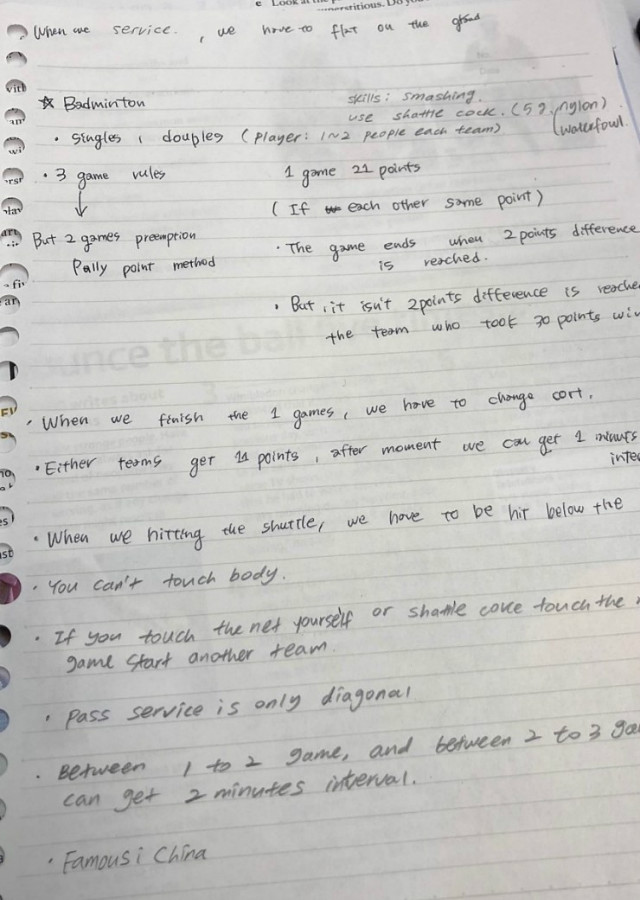 e Look at the
When we service. , we have to flat on the
☆ Badminton
skills : smashing.
use shuttle cock. (5g. nylon)
(waterfowl.
· singles , doubles (player: 1~2 people each team)
· 3 game rules
1 game 21 points
↓
(If each other same point)
But 2 games preemption
· The game ends when 2 points difference
Rally point method
is reached.
· But, it isn't 2points difference is reache
the team who took 30 points win
· When we finish the 1 games, we have to change cort.
· Either teams get 11 points, after moment we can get 1 minuts
inte
· When we hitting the shuttle, we have to be hit below the
· You can't touch body.
· If you touch the net yourself or shattle coke touch the
game start another team.
· Pass service is only diagonal
· Between 1 to 2 game, and between 2 to 3 ga
can get 2 minutes interval.
· Famous : China